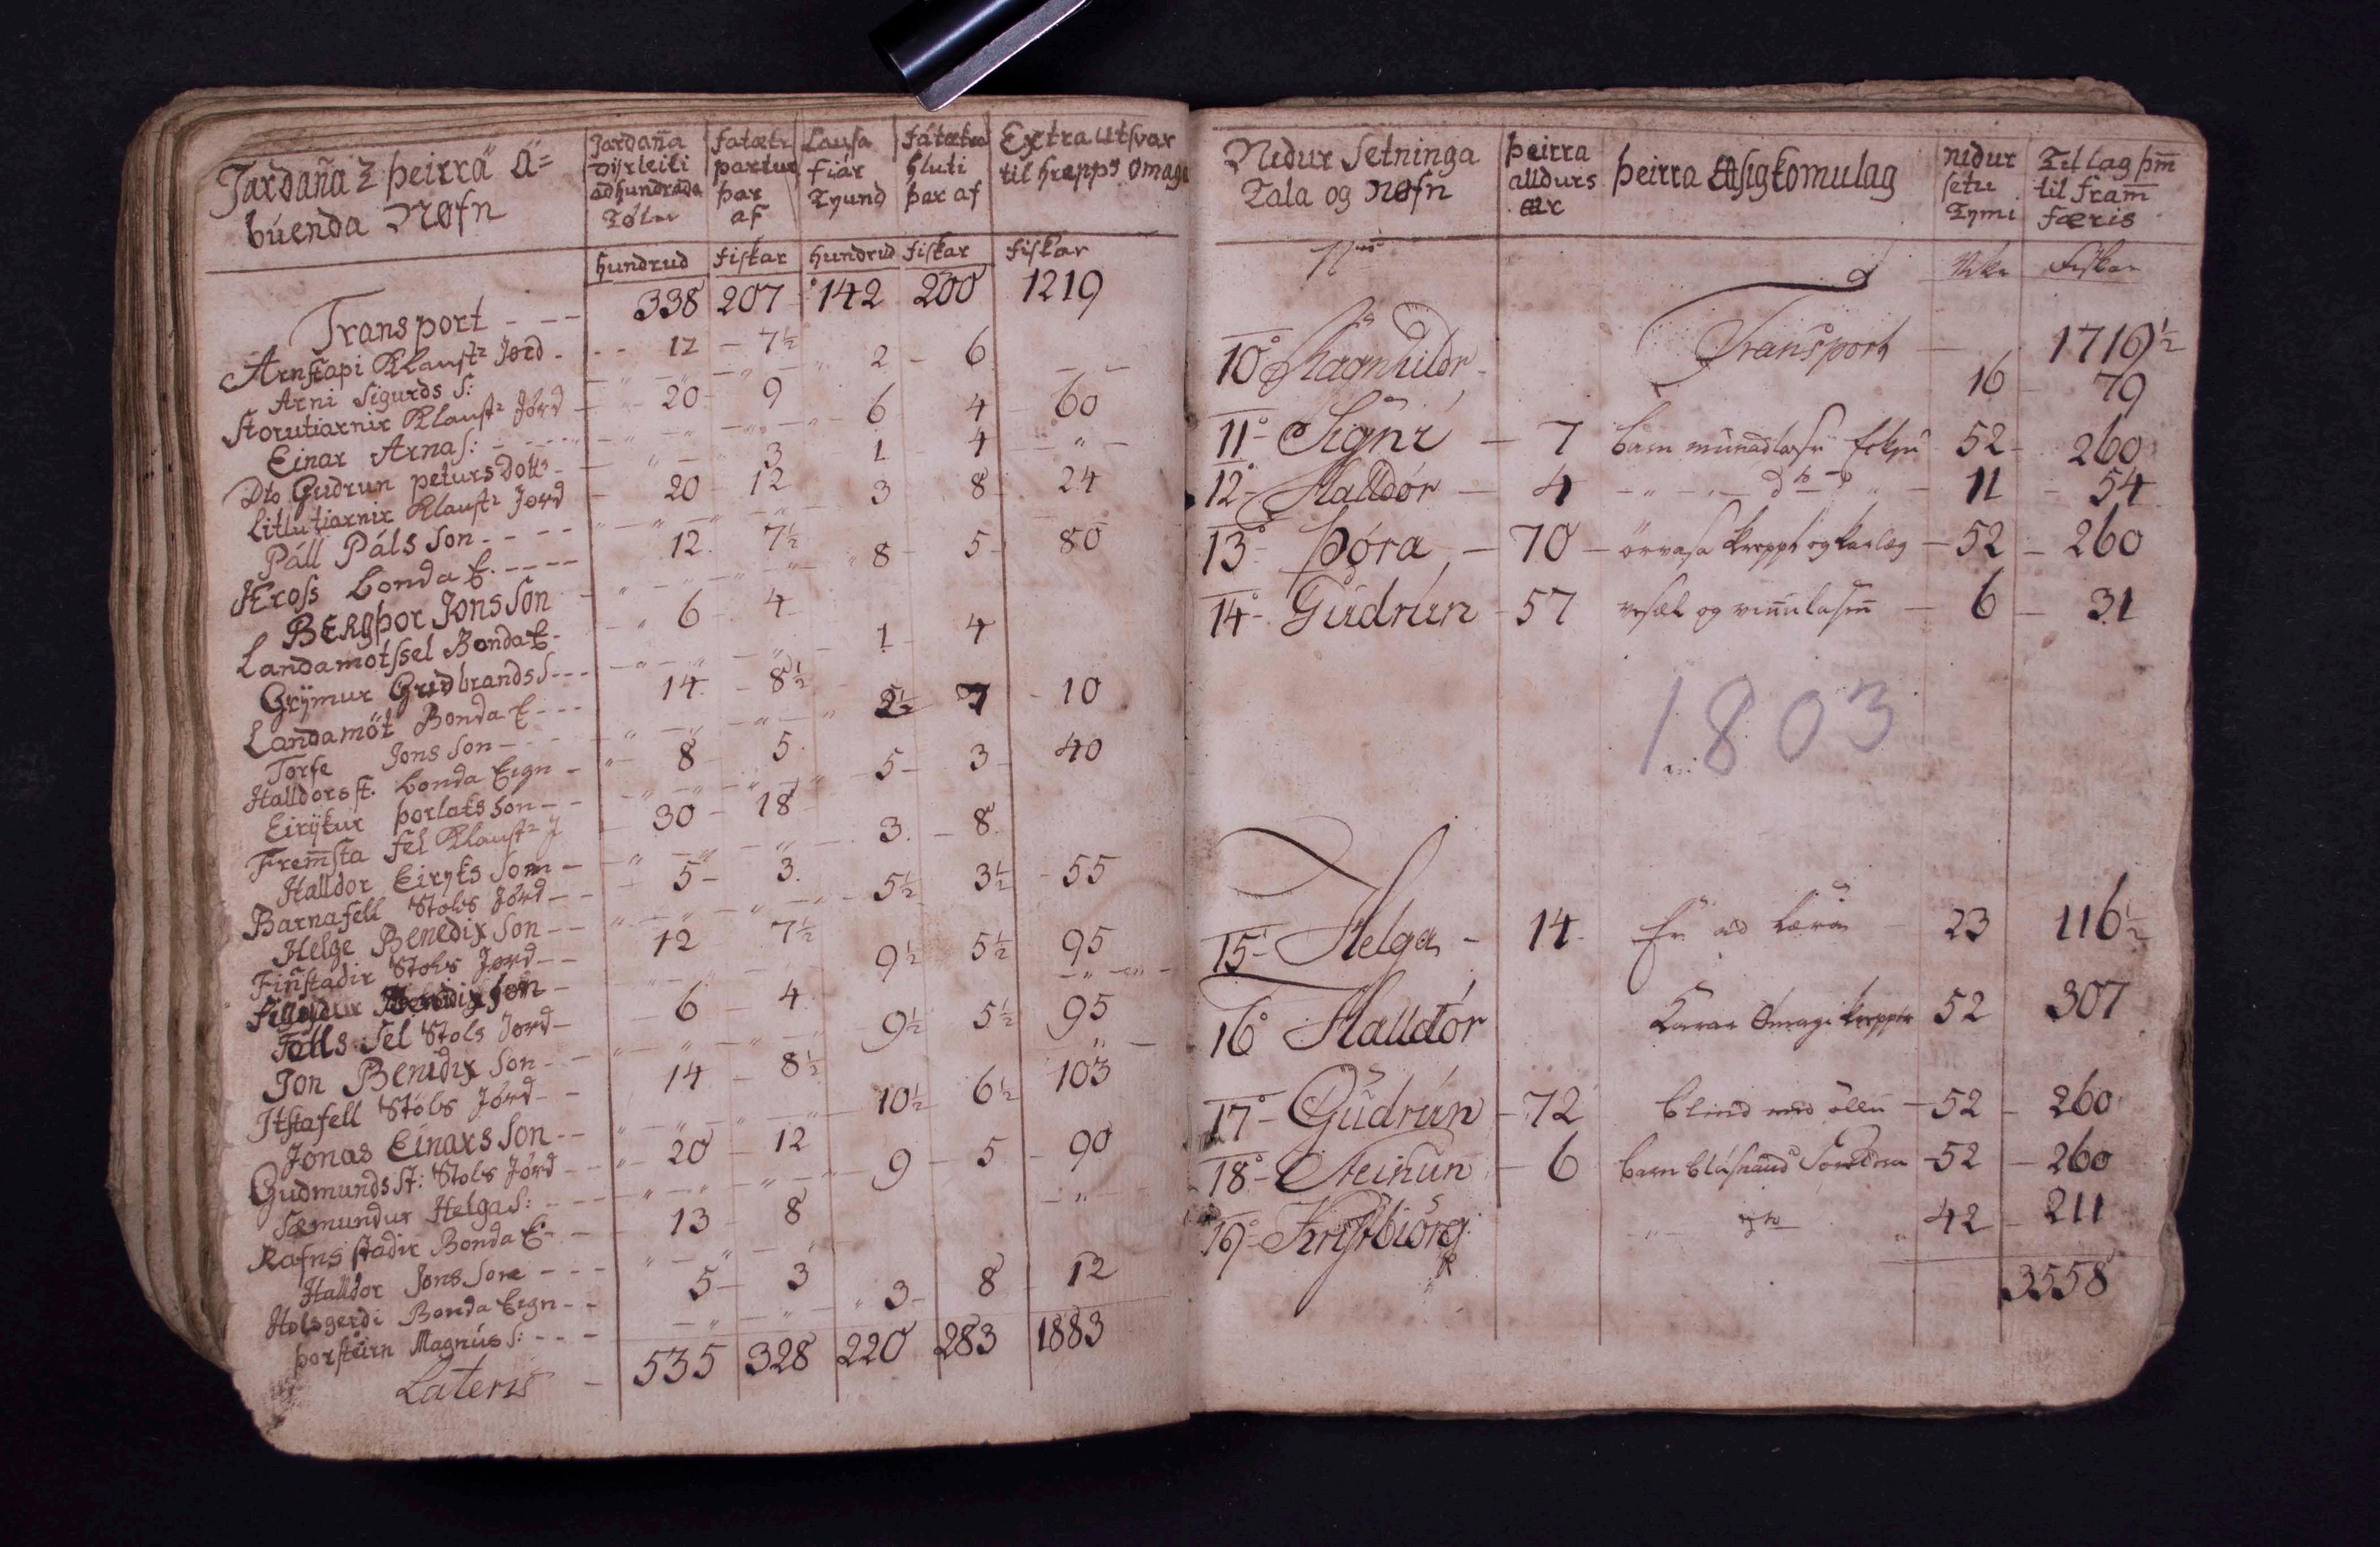 Jardaña Z þeirra Ä=
búenda Nøfn
Jardaña
Dÿrleiki
ad hundrada
Tølu
fatætr
partur
þar
af
Lausa
fiár
Tyund
fátætra
hluti
þar af
Extra Utsvar
til hrepps Omaga
hundrud fiskar hundrud fiskar fiskar
Transport - - - 338 207 142 200 1219
Arnstapi Klaustr Jørd - 12 - 7½
Arni Sigurds S: 2 - 6
Storutiarnir Klaustr Jørd 20 - 9
Einar Arna S: 6 4 60
Dto Gudrun peturs Dott 3 1 4
Litlutiarnir Klaustr Jørd 20 - 12
Páll Páls Son - - - - 3 8 24
Kross bonda E. - - - - 12 7½
BERgþor Jons Son 8 - 5 - 80
Landamotssel Bonda E - 6 - 4
Grÿmur Gudbrands S - - - 1 - 4
Landamöt Bonda E - - - 14 - 8½
Torfe Jons Son - - 2½ 7 - 10
Halldorsst. bonda Eign - 8 5
Eirÿkur þorlaks Son - - 5 - 3 - 40
Fremsta fel Klaustr J 30 - 18
Halldor Eiryks Son - 3 - 8
Barnafell Stols Jørd - - 5 - 3
Helge Benedix Son - - 5½ 3½ - 55
Finstadir Stols Jørd - - 12 7½
9½ 5½ 95
Fälls Sel Stols Jord - 6 - 4
Jon Benidix Son - - 9½ 5½ 95
Jtstafell Stols Jørd - - 14 - 8½
Jonas Einars Son - - 10½ 6½ 103
Gudmunds St: Stols Jørd - - 20 - 12
Sæmundur Helga S: - - - 9 - 5 - 90
Rafns stadir Bonda E - - 13 - 8
Halldor Jons Sone - - -
Holsgerdi Bonda Eign - - 5 - 3
þorsteirn Magnús S: - - - 3 - 8 12
Lateris - 535 328 220 283 1883
Nidur Setninga
Tala og Nøfn
þeirra
alldurs
ár
þeirra Asigkomulag
nidur
setu
Tymi
Tillag þm̄
til fram̄
færis
Vikr Fiskar
Transport - 1719½
10° Ragnhildr - 16 79
11° - Signi - 7 barn 52 - 260
12° - Halldór - 4 - „ - „ - dto „ - 11 - 54
13° - Þóra - 70 - örvasa kreppt og karlæg - 52 - 260
14° - Gudrún - 57 vesæl og - 6 - 31
1803
15 - Helga - 14 - ad læra 23 116½
16° Halldór Karar Ómagi kreppr 52 307
17° - Gudrún - 72 blind med öllu - 52 - 260
18° - Steinun - 6 barn 52 - 260
19° - Kristbiörg - „ - dto „ 42 - 211
3558